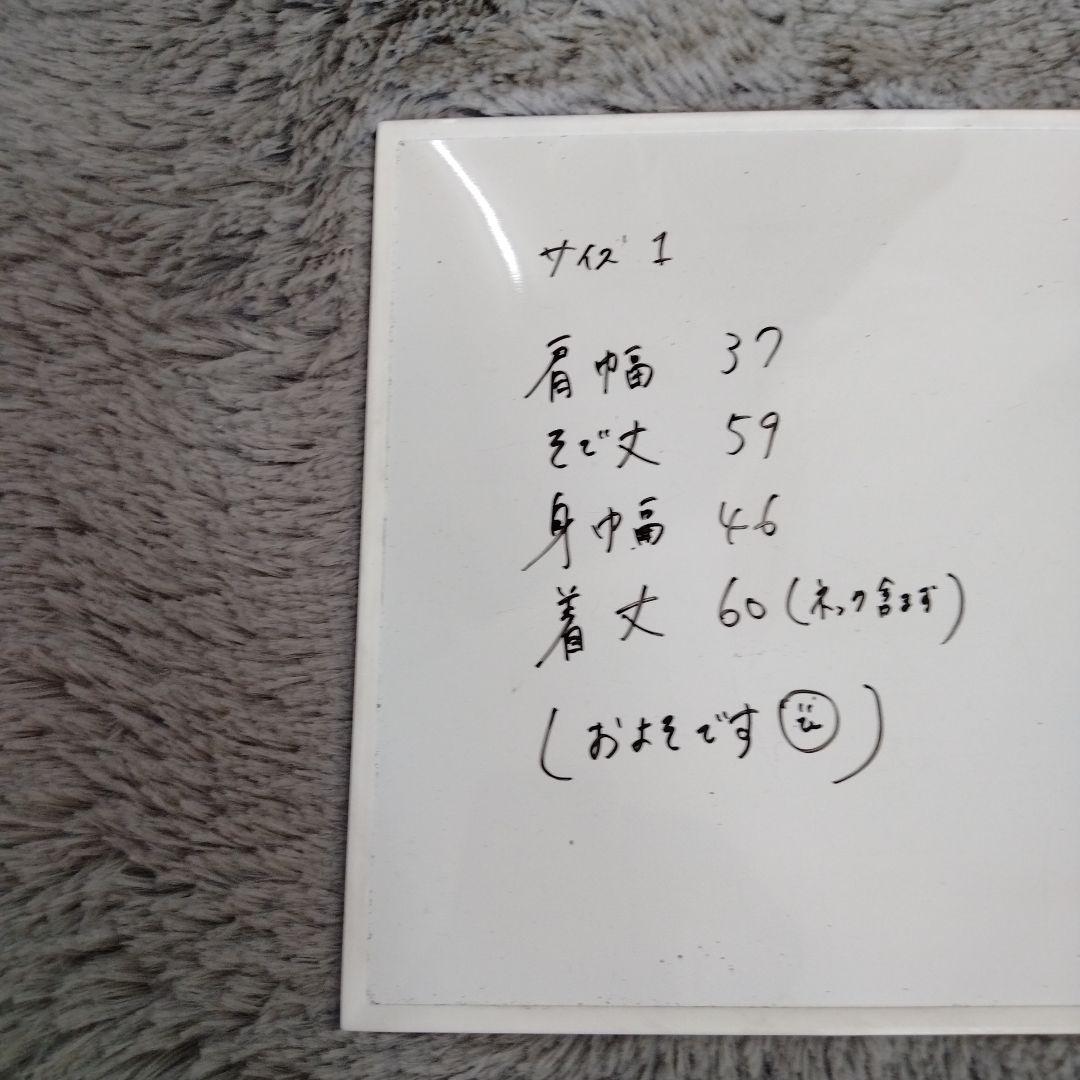 サイズ 1
肩幅 37
そで丈 59
身幅 46
着丈 60 (ネック含ます)
(およそです)